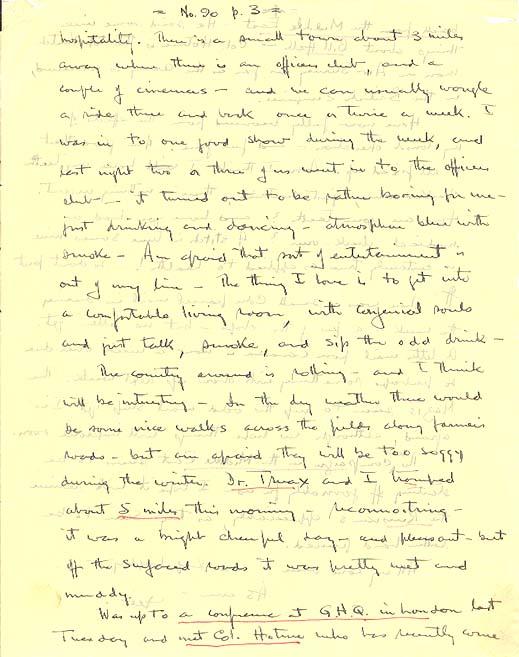 = No. 90 p. 3 =
hospitality. There is a small town about 3 miles
away where there is an officers club, and a
couple of cinemas - and we can usually wangle
a ride there and back once or twice a week. I
was in to one good show during the week, and
last night two or three of us went in to the officers
club - it turned out to be rather boring for me -
just drinking and dancing - atmosphere blue with
smoke - Am afraid that sort of entertainment is
out of my line - The thing I love is to get into
a comfortable living room, with congenial souls
and just talk, smoke, and sip the odd drink -
The country around is rolling - and I think
will be interesting - In the dry weather there would
be some nice walks across the fields along farmers
roads - but am afraid they will be too soggy
during the winter. Dr. Truax and I tromped
about 5 miles this morning - reconnoitring -
it was a bright cheerful day - and pleasant - but
off the surfaced roads it was pretty wet and
muddy.
Was up to a conference at G.H.Q. in London last
Tuesday and met Col. who has recently come